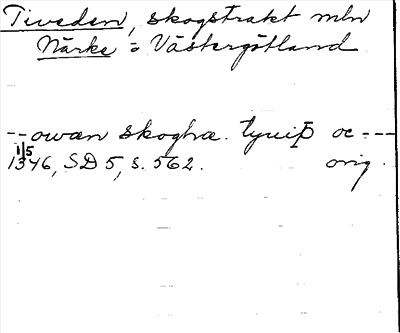 Tiveden, skogstrakt mln
Närke o Västergötland
-- owæn skoghæ. tyuiþ oc ---
1/5
1346, SD 5, s. 562. orig.